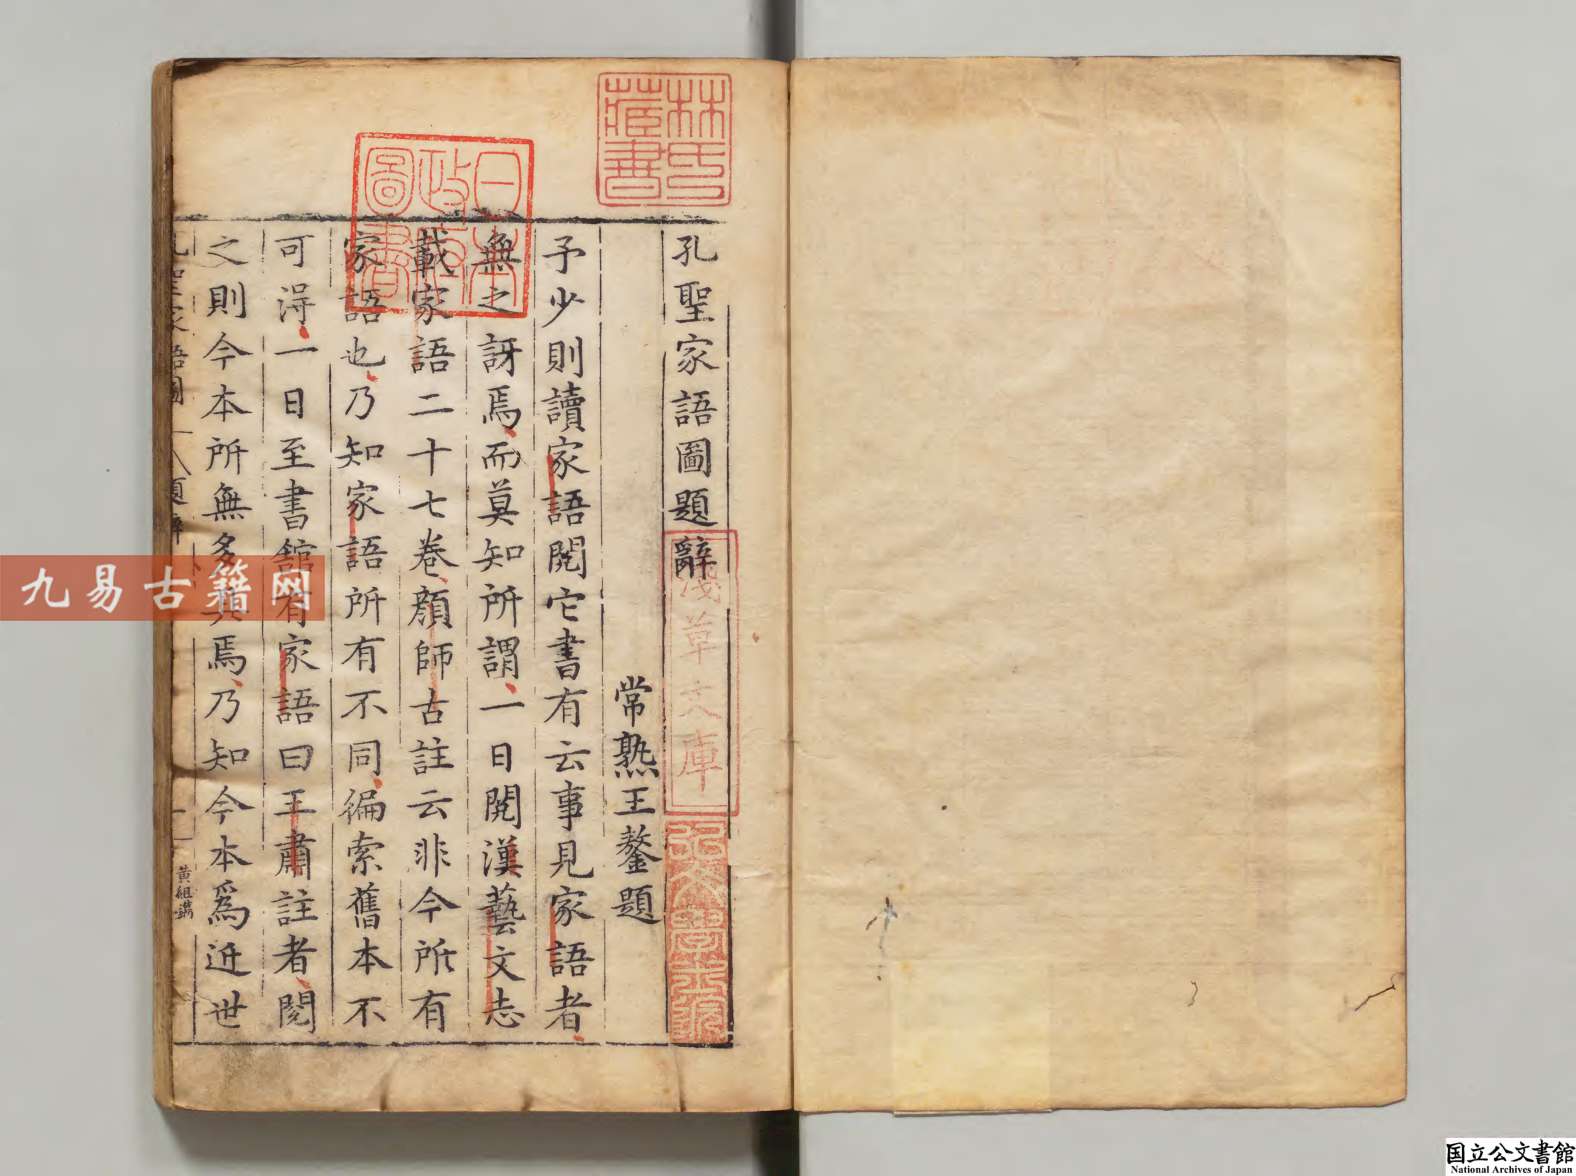 孔聖家語圖題辭
常熟王鏊題
予少則讀家語閱它書有云事見家語者
無之訝焉而莫知所謂一日閱漢藝文志
載家語二十七卷顏師古註云非今所有
家語也乃知家語所有不同徧索舊本不
可得一日至書舘有家語曰王肅註者閱
之則今本所無多具焉乃知今本爲近世
孔聖家語圖
題辭
一
黄組鐫
林氏藏書
日本政府圖書
淺草文庫
九易古籍网
国立公文書館
National Archives of Japan